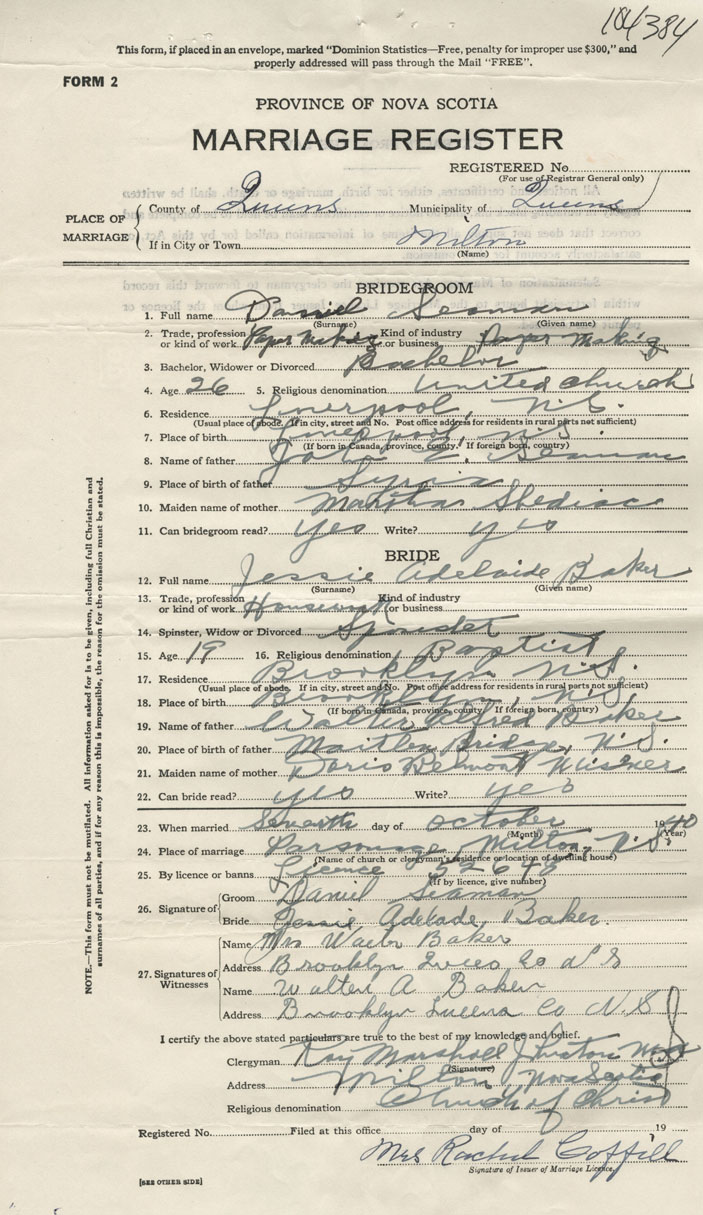 104384
This form, if placed in an envelope, marked "Dominion Statistics—Free, penalty for improper use $300," and
properly addressed will pass through the Mail "FREE".
FORM 2
PROVINCE OF NOVA SCOTIA
MARRIAGE REGISTER
REGISTERED No.
(For use of Registrar General only)
PLACE OF MARRIAGE
County of Queens Municipality of Queens
If in City or Town Milton
(Name)
BRIDEGROOM
1. Full name Daniel Seaman
(Surname) (Given name)
2. Trade, profession or kind of work Paper Making Kind of industry or business Paper Making
3. Bachelor, Widower or Divorced Bachelor
4. Age 26 5. Religious denomination United Church
6. Residence Liverpool, N.S.
(Usual place of abode. If in city, street and No. Post office address for residents in rural parts not sufficient)
7. Place of birth Liverpool, N.S.
(If born in Canada, province, county. If foreign born, country)
8. Name of father John Seaman
9. Place of birth of father Syria
10. Maiden name of mother Martha Shediac
11. Can bridegroom read? Yes Write? yes
BRIDE
12. Full name Jessie Adelaide Baker
(Surname) (Given name)
13. Trade, profession or kind of work Housework Kind of industry or business
14. Spinster, Widow or Divorced Spinster
15. Age 19 16. Religious denomination Baptist
17. Residence Brooklyn N.S.
(Usual place of abode. If in city, street and No. Post office address for residents in rural parts not sufficient)
18. Place of birth Brooklyn, N.S.
(If born in Canada, province, county. If foreign born, country)
19. Name of father Walter Alfred Baker
20. Place of birth of father Maitlen Bridge, N.S.
21. Maiden name of mother Doris Belmont Wisner
22. Can bride read? yes Write? yes
23. When married Seventh day of October 1940
(Month) (Year)
24. Place of marriage Parsonage, Milton, N.S.
(Name of church or clergyman's residence or location of dwelling house)
25. By licence or banns Licence 52648
(If by licence, give number)
26. Signature of
Groom Daniel Seaman
Bride Jessie Adelade Baker.
27. Signatures of Witnesses
Name Mrs Baker
Address Brooklyn Co N S
Name Walter A Baker
Address Brooklyn Queens Co N.S
I certify the above stated particulars are true to the best of my knowledge and belief.
Clergyman Ray Marshall
(Signature)
Address Milton, Nova Scotia
Religious denomination Church of Christ
Registered No. Filed at this office day of 19
Mrs Rachel Coffill
Signature of Issuer of Marriage Licence.
[SEE OTHER SIDE]
NOTE.—This form must not be mutilated. All information asked for is to be given, including full Christian and
surnames of all parties, and if for any reason this is impossible, the reason for the omission must be stated.